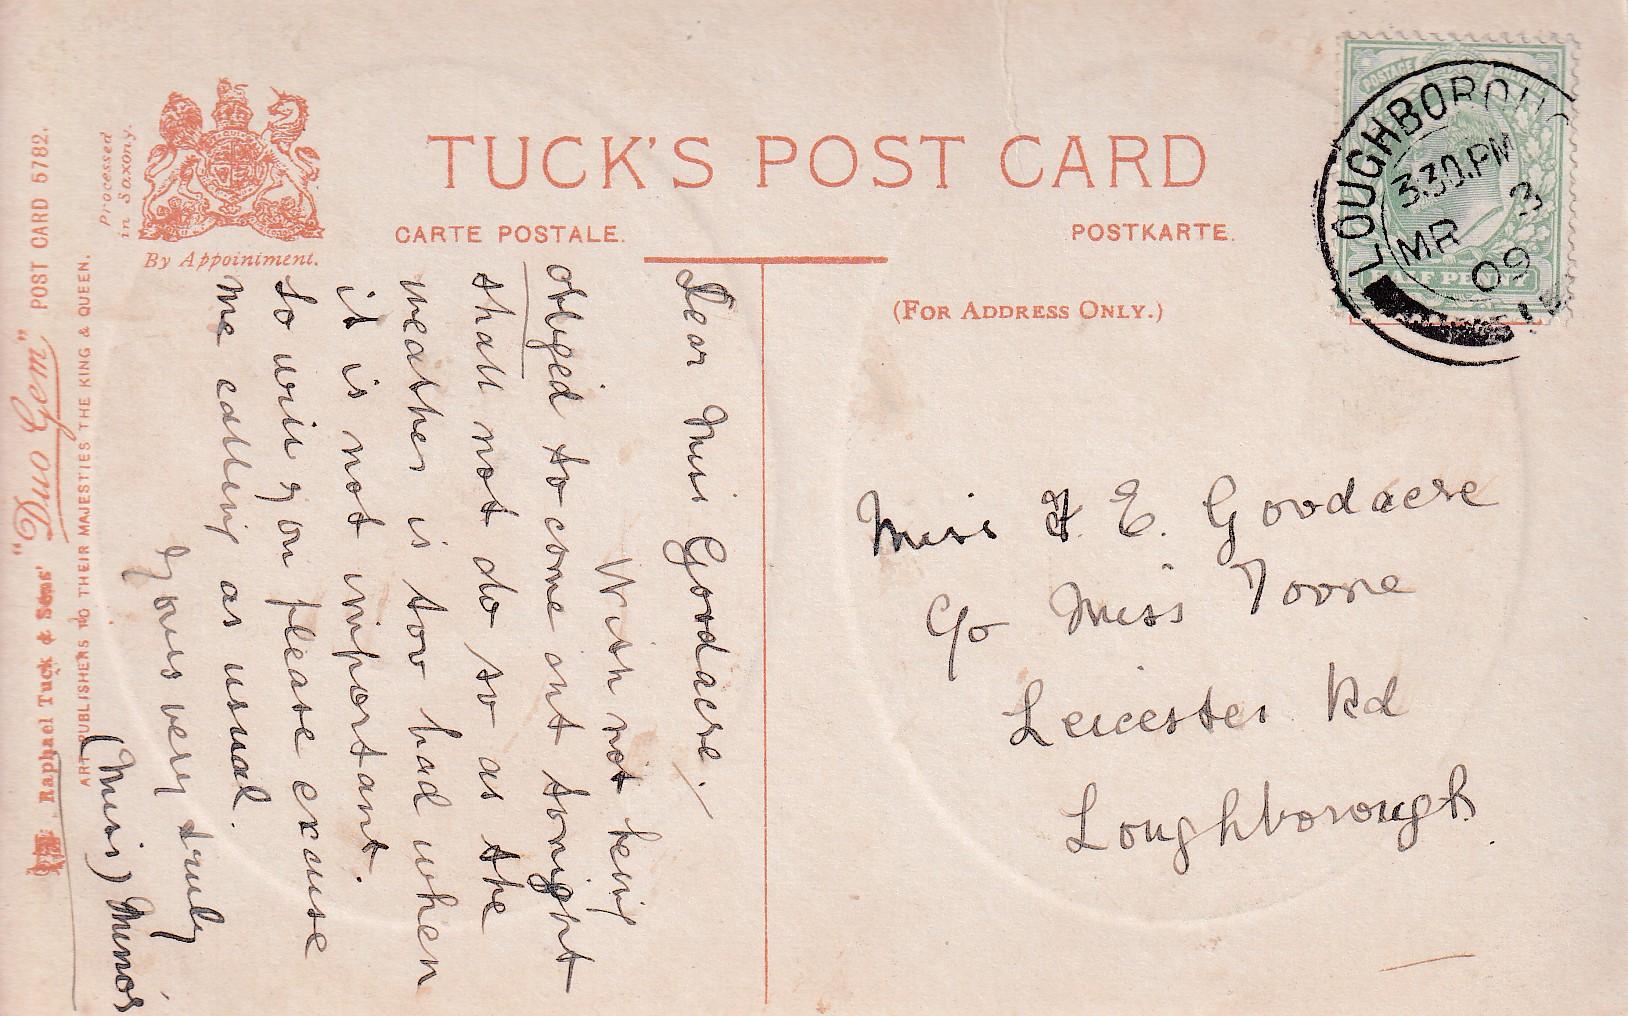 TUCK'S POST CARD
CARTE POSTALE.
POSTKARTE.
(FOR ADDRESS ONLY.)
By Appointment.
Processed
in Saxony.
Raphael Tuck & Sons' "Duo Gem" POST CARD 5782.
ART PUBLISHERS TO THEIR MAJESTIES THE KING & QUEEN.
POSTAGE
HALF PENNY
LOUGHBOROU
3.30.PM
MR 3
09
Dear Miss Goodacre.
With not being
obliged to come out tonight
shall not do so as the
weather is too bad when
it is not important.
So will you please excuse
me calling as usual.
Yours very truly
(Miss) Minor
Miss F. E. Goodacre
C/o Miss Toone
Leicester Rd
Loughborough.